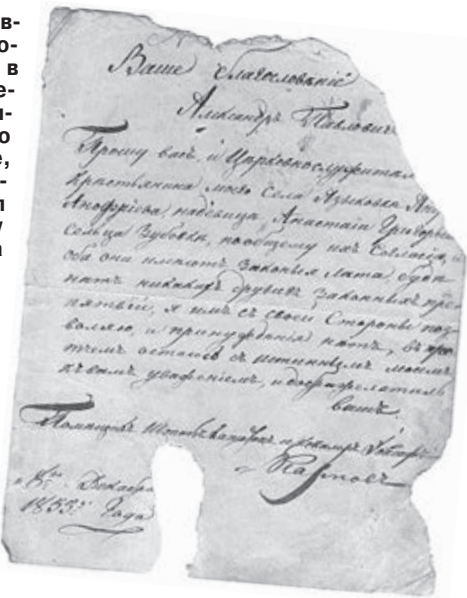 в-
о-
в
е-
и-
о
е,
-
и
у
а
Ваше благословѣніе
Александръ Павловичъ
Прошу васъ, и Церковнослужител
Крестьянина моего села Языковки
Анофріева, надевица, Анастасіи Григорье
сельца Зубовки, пообщему ихъ согласію, и
оба они имеютъ законныя лета, буде
нетъ никакихъ другихъ законныхъ пре
пятвій, я имъ съ своей Стороны поз
воляю, и принужденія нетъ, въ про
чемъ остаюсь съ истиннымъ моимъ
къ вамъ уваженіемъ, и доброжелатель
вашъ
Помещикъ
Декабря
1855 Года